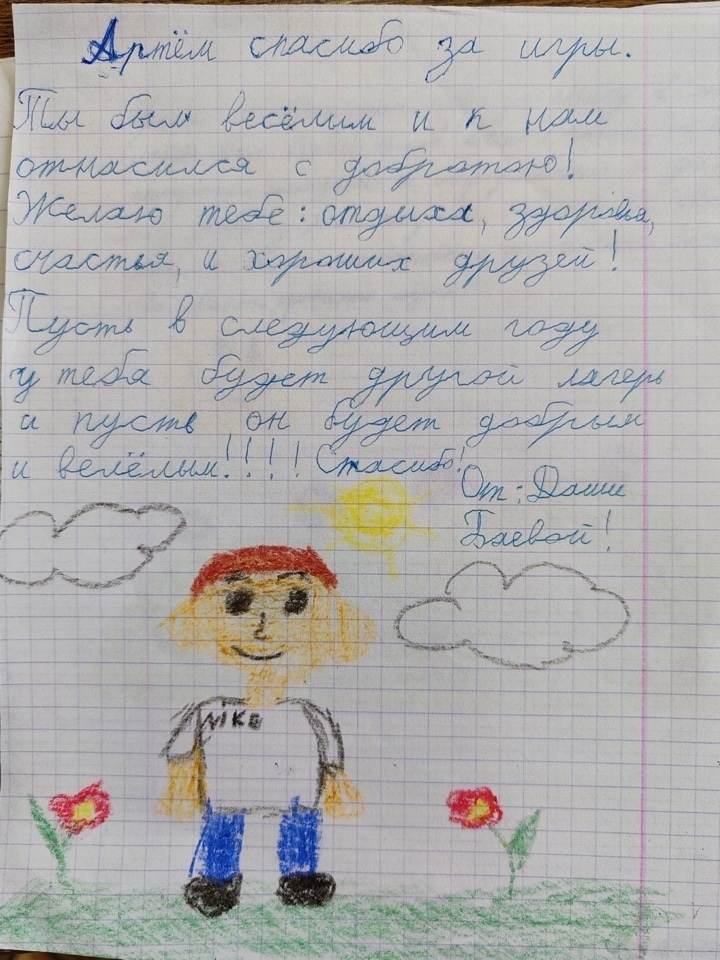 Артём спасибо за игры.
Ты был весёлым и к нам
отнасился с добратою!
Желаю тебе: отдыха, здоровья,
счастья, и хороших друзей!
Пусть в следующим году
у тебя будет другой лагерь
и пусть он будет добрым
и велёлым!!!! Спасибо!
От: Даши
Баевой!
NIKE